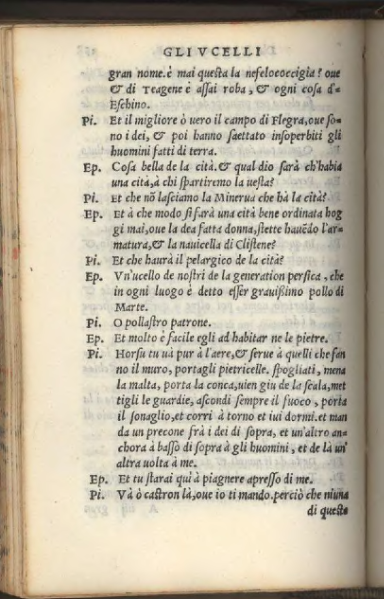 GLI VCELLI
gran nome. è mai questa la nefelococcigia? oue
& di Teagene è assai roba, & ogni cosa d'
Eschino.
Pi. Et il migliore ò uero il campo di Flegra, oue so=
no i dei, & poi hanno saettato insoperbiti gli
huomini fatti di terra.
Ep. Cosa bella de la cità. & qual dio sarà ch'habia
una cità, à chi spartiremo la uesta?
Pi. Et che nõ lasciamo la Minerua che hà la cità?
Ep. Et à che modo si farà una cità bene ordinata hog
gi mai, oue la dea fatta donna, stette hauẽdo l'ar=
matura, & la nauicella di Clistene?
Pi. Et che haurà il pelargico de la cità?
Ep. Vn'ucello de nostri de la generation persica, che
in ogni luogo è detto esser grauissimo pollo di
Marte.
Pi. O pollastro patrone.
Ep. Et molto è facile egli ad habitar ne le pietre.
Pi. Horsu tu uà pur à l'aere, & serue à quelli che fan
no il muro, portagli pietricelle. spogliati, mena
la malta, porta la conca, uien giu de la scala, met
tigli le guardie, ascondi sempre il fuoco, porta
il sonaglio, et corri à torno et iui dormi. et man
da un precone frà i dei di sopra, et un'altro an=
chora à basso di sopra à gli huomini, et de là un'
altra uolta à me.
Ep. Et tu starai quì à piagnere apresso di me.
Pi. Và ò castron là, oue io ti mando. perciò che niuna
di queste